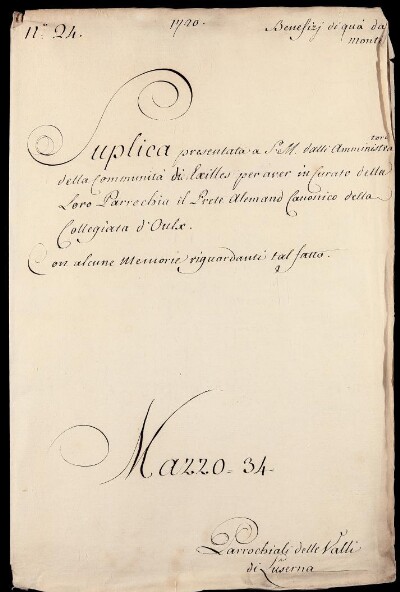 N.º 24.
1720.
Benefizj di quà da
monti
Suplica presentata a S. M. dalli Amministratori
della Communità di Exilles per aver in Curato della
Loro Parrochia il Prete Alemand Canonico della
Collegiata d'Oulx.
Con alcune Memorie riguardanti tal fatto.
Mazzo - 34 -
Parrochiali delle Valli
di Luserna